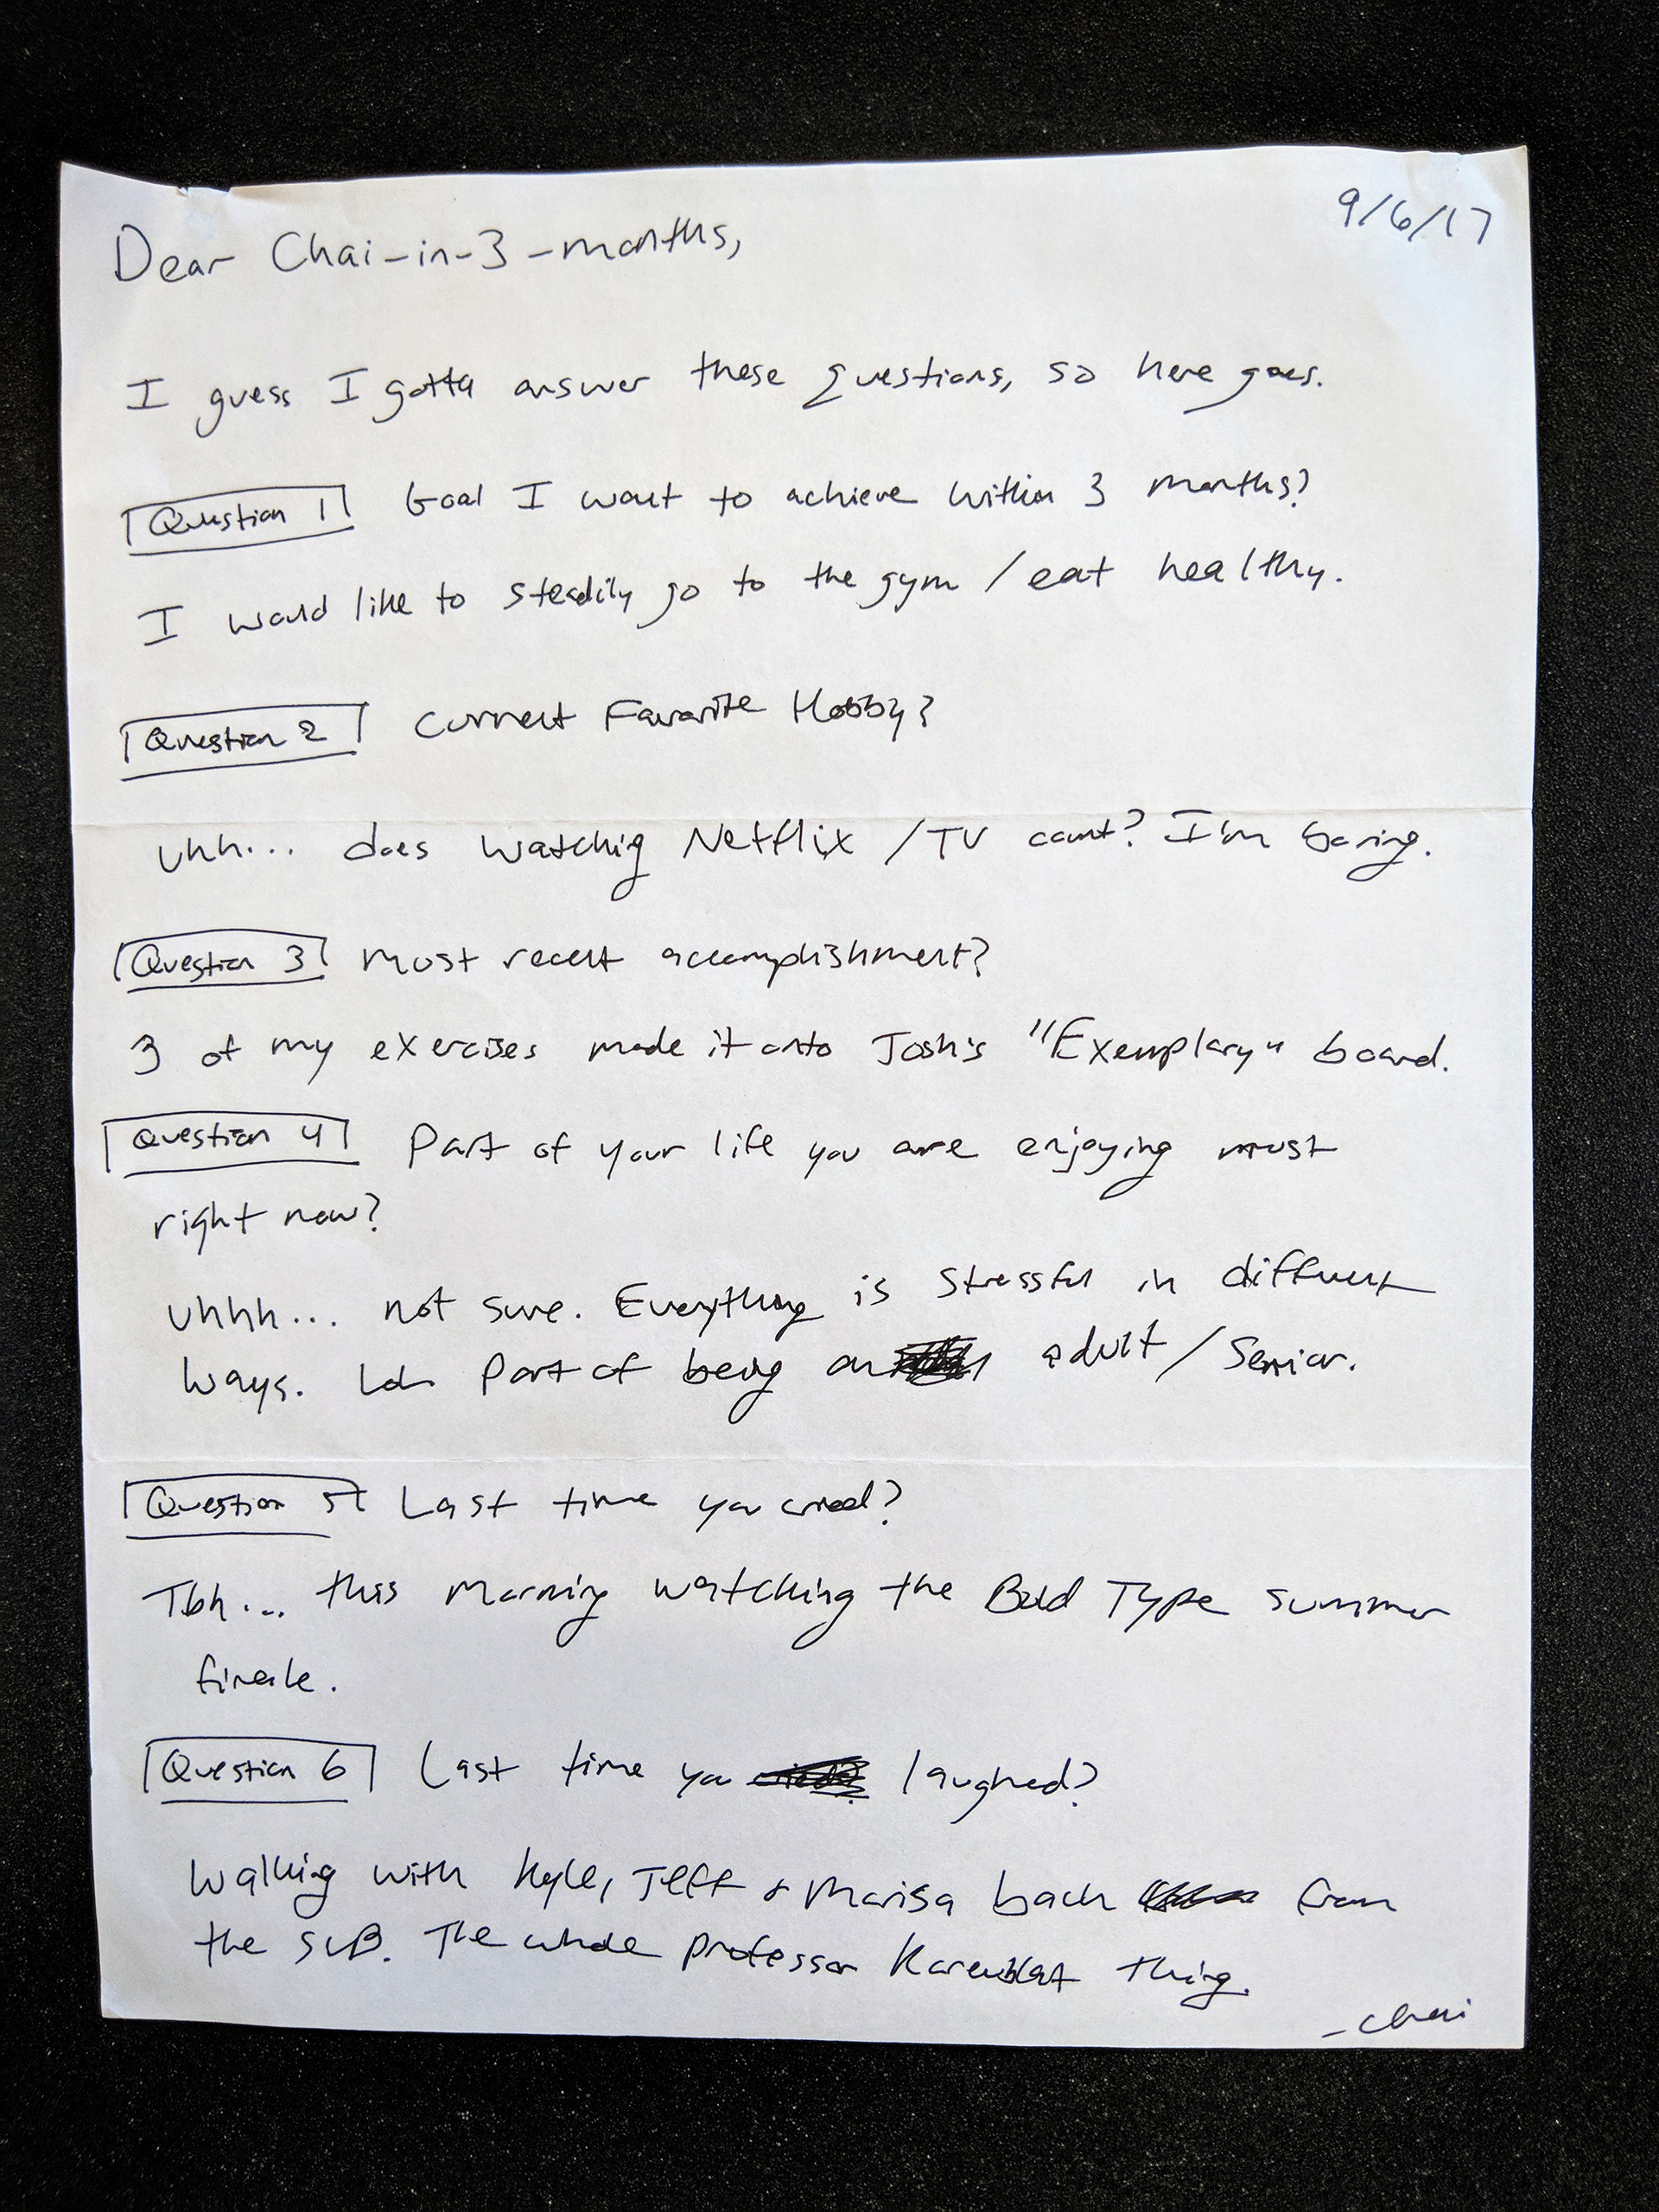 9/6/17
Dear Chai-in-3-months,
I guess I gotta answer these questions, so here goes.
Question 1 Goal I want to achieve within 3 months?
I would like to steadily go to the gym / eat healthy.
Question 2 Current Favorite Hobby?
Uhh... does watching Netflix / TV count? I'm boring.
Question 3 Most recent accomplishment?
3 of my exercises made it onto Josh's "Exemplary" board.
Question 4 Part of your life you are enjoying most
right now?
Uhhh... not sure. Everything is stressful in different
ways. Part of being an adult / Senior.
Question 5 Last time you cried?
Tbh... this morning watching the Bold Type summer
finale.
Question 6 Last time you laughed?
Walking with Kyle, Jeff & Marisa back from
the SUB. The whole professor thing.
-Chai